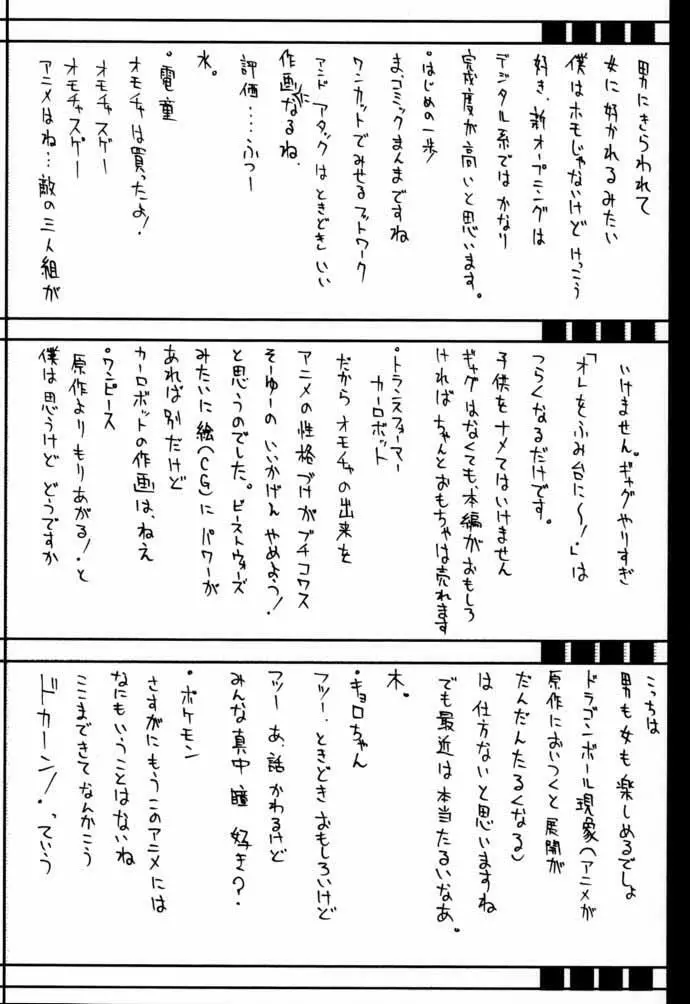 男にきらわれて
女に好かれるみたい
僕はホモじゃないけど けっこう
好き、新オープニングは
デジタル系ではかなり
完成度が高いと思います。
・はじめの一歩
ま、コミックまんまですね
ワンカットでみせるフットワーク
アンド アタックはときどきいい
作画になるね、
評価……ふつー
水。
・電童
オモチャは買ったよ!
オモチャスゲー
オモチャスゲー
アニメはね…敵の三人組が
いけません。ギャグやりすぎ
「オレをふみ台に〜!」は
つらくなるだけです。
子供をナメてはいけません
ギャグはなくても、本編がおもしろ
ければ ちゃんとおもちゃは売れます
・トランスフォーマー
カーロボット
だから オモチャの出来を
アニメの性格づけがブチコワス
そーゆーの いいかげん やめよう!
と思うのでした。ビーストウォーズ
みたいに絵(CG)に パワーが
あれば別だけど
カーロボットの作画は、ねえ
・ワンピース
原作よりもりあがる!と
僕は思うけど どうですか
こっちは
男も女も楽しめるでしょ
ドラゴンボール現象(アニメが
原作においつくと展開が
だんだんたるくなる)
は 仕方ないと思いますね
でも最近は本当たるいなあ。
木。
・キョロちゃん
フツー、ときどき おもしろいけど
フツー あ、話かわるけど
みんな真中 瞳 好き?
・ポケモン
さすがにもうこのアニメには
なにもいうことはないね
ここまできてなんかこう
ドカーン!っていう